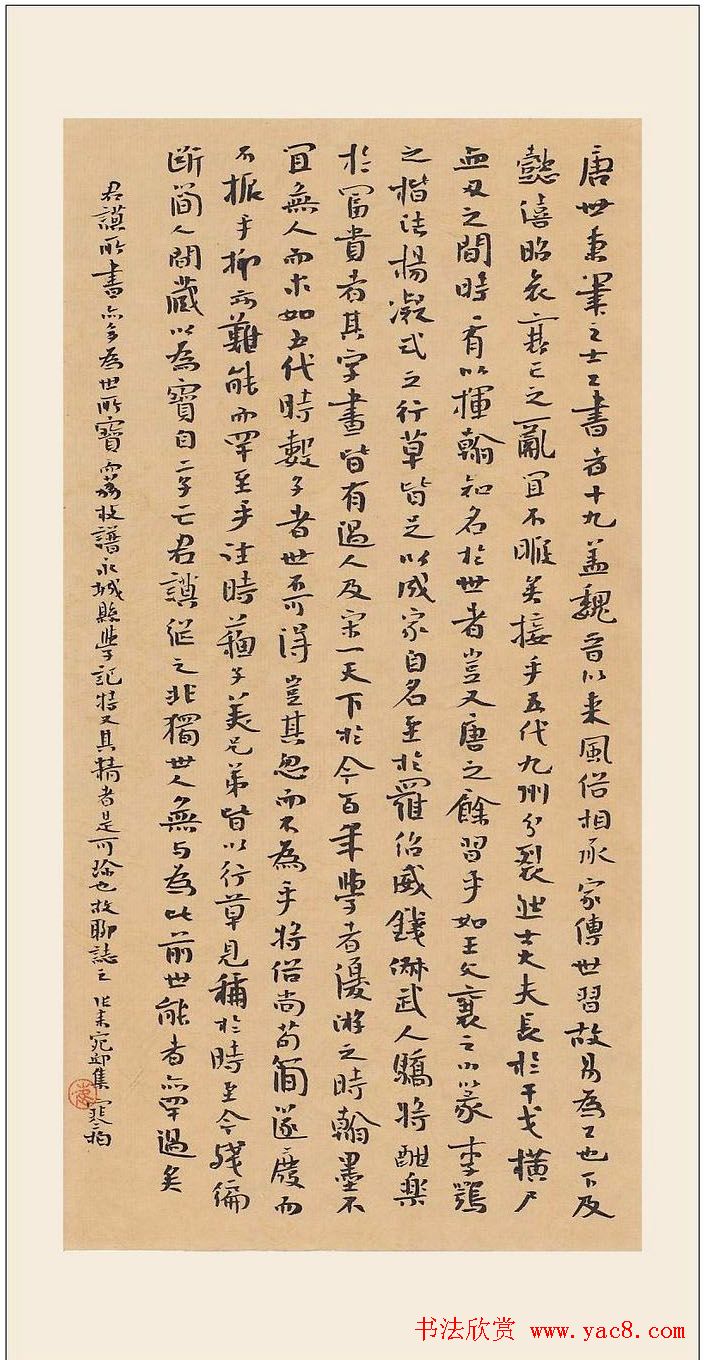 唐世秉筆之士工書者十九蓋魏晉以來風俗相承家傳世習故易為工也下及
懿僖昭哀衰亡之亂宜不暇矣接乎五代九州分裂士大夫長於干戈橫尸
血刃之間時有以揮翰知名於世者豈又唐之餘習乎如王文秉之小篆李鶚
之楷法楊凝式之行草皆足以成家自名至於羅紹威錢俶武人驕將酣樂
於富貴者其字畫皆有過人及宋一天下於今百年學者優游之時翰墨不
宜無人而求如五代時數子者世不可得豈其忽而不為乎將俗尚苟簡遂廢而
不振乎抑亦難能而罕至乎往時蘇子美兄弟皆以行草見稱於時至今殘編
斷簡人間藏以為寶自二子亡君謨繼之非獨世人無與為比前世能者亦罕過矣
君謨所書亦多為世所寶而荔枝譜永城縣學記特又其精者是可珍也故聊誌之
书法欣赏 www.yac8.com